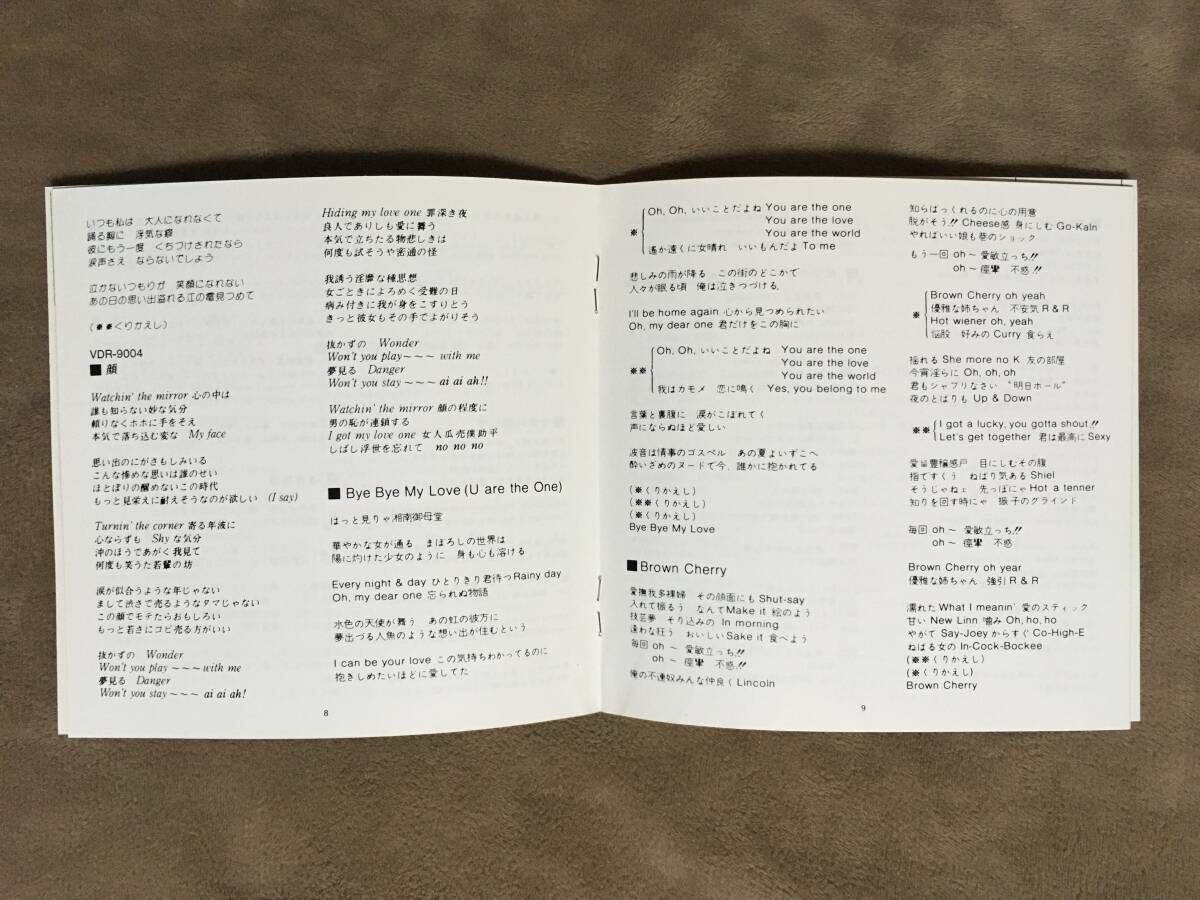 いつも私は 大人になれなくて
踊る胸に 浮気な癖
彼にもう一度 くちづけされたなら
涙声さえ ならないでしょう
泣かないつもりが 笑顔になれない
あの日の思い出溢れる江の電見つめて
(※※くりかえし)
VDR-9004
■顔
Watchin' the mirror 心の中は
誰も知らない妙な気分
頼りなくホホに手をそえ
本気で落ち込む変な My face
思い出のにがさもしみいる
こんな惨めな思いは誰のせい
ほとぼりの醒めないこの時代
もっと見栄えに耐えそうなのが欲しい (I say)
Turnin' the corner 寄る年波に
心ならずも Shyな気分
沖のほうであがく我見て
何度も笑うた若輩の坊
涙が似合うような年じゃない
まして渋さで売るようなタマじゃない
この顔でモテたらおもしろい
もっと若さにコビ売る方がいい
抜かずの Wonder
Won't you play～～～with me
夢見る Danger
Won't you stay～～～ ai ai ah!
Hiding my love one 罪深き夜
良人でありしも愛に舞う
本気で立ちたる物悲しきは
何度も試そうや密通の怪
我誘う淫靡な種思想
女ごときによろめく受難の日
病み付きに我が身をこすりとう
きっと彼女もその手でよがりそう
抜かずの Wonder
Won't you play～～～ with me
夢見る Danger
Won't you stay～～～ ai ai ah!!
Watchin' the mirror 顔の程度に
男の恥が連鎖する
I got my love one 女人瓜売僕助平
しばし浮世を忘れて no no no
■ Bye Bye My Love (U are the One)
はっと見りゃ湘南御母堂
華やかな女が通る まぼろしの世界は
陽に灼けた少女のように 身も心も溶ける
Every night & day ひとりきり君待つRainy day
Oh, my dear one 忘られぬ物語
水色の天使が舞う あの虹の彼方に
夢出づる人魚のような想い出が住むという
I can be your love この気持ちわかってるのに
抱きしめたいほどに愛してた
8
※ Oh, Oh, いいことだよね You are the one
You are the love
You are the world
遙か遠くに女晴れ いいもんだよ To me
悲しみの雨が降る この街のどこかで
人々が眠る頃 俺は泣きつづける.
I'll be home again 心から見つめられたい
Oh, my dear one 君だけをこの胸に
※※ Oh, Oh, いいことだよね You are the one
You are the love
You are the world
我はカモメ 恋に鳴く Yes, you belong to me
言葉と裏腹に 涙がこぼれてく
声にならぬほど愛しい
波音は情事のゴスペル あの夏よいずこへ
酔いざめのヌードで今. 誰かに抱かれてる
(※くりかえし)
(※※くりかえし)
(※くりかえし)
Bye Bye My Love
■Brown Cherry
愛撫我多裸婦 その顔面にもShut-say
入れて振るう なんてMake it 絵のよう
技芸夢 そり込みの In morning
遠わな狂う おいしいSake it 食べよう
毎回 oh～ 愛敏立っち!!
oh～ 痙攣 不惑.!!
俺の不連奴みんな仲良くLincoln
9
知らばっくれるのに心の用意
脱がそう!! Cheese感 身にしむ Go-Kaln
やればいい娘も巷のショック
もう一回 oh～ 愛敏立っち.!!
oh～ 痙攣 不惑.!!
※ Brown Cherry oh yeah
優雅な姉ちゃん 不安気R＆R
Hot wiener oh, yeah
悩殺 好みの Curry 食らえ
揺れる She more no K 友の部屋
今宵淫らに Oh, oh, oh
君もシャブリなさい “明日ホール”
夜のとばりも Up & Down
※※ I got a lucky, you gotta shout!!
Let's get together 君は最高に Sexy
愛留豊穣感戸 目にしむその腹
指ですくう ねばり気ある Shiel
そうじゃねェ 先っぽにゃ Hot a tenner
知りを回す時にゃ 振子のグラインド
毎回 oh～ 愛敏立っち.!!
oh～ 痙攣 不惑
Brown Cherry oh year
優雅な姉ちゃん 強引R＆R
濡れた What I meanin' 愛のスティック
甘い New Linn 噛み Oh, ho, ho
やがて Say-Joey からすぐ Co-High-E
ねばる女の In-Cock-Bockee
(※※くりかえし)
(※くりかえし)
Brown Cherry